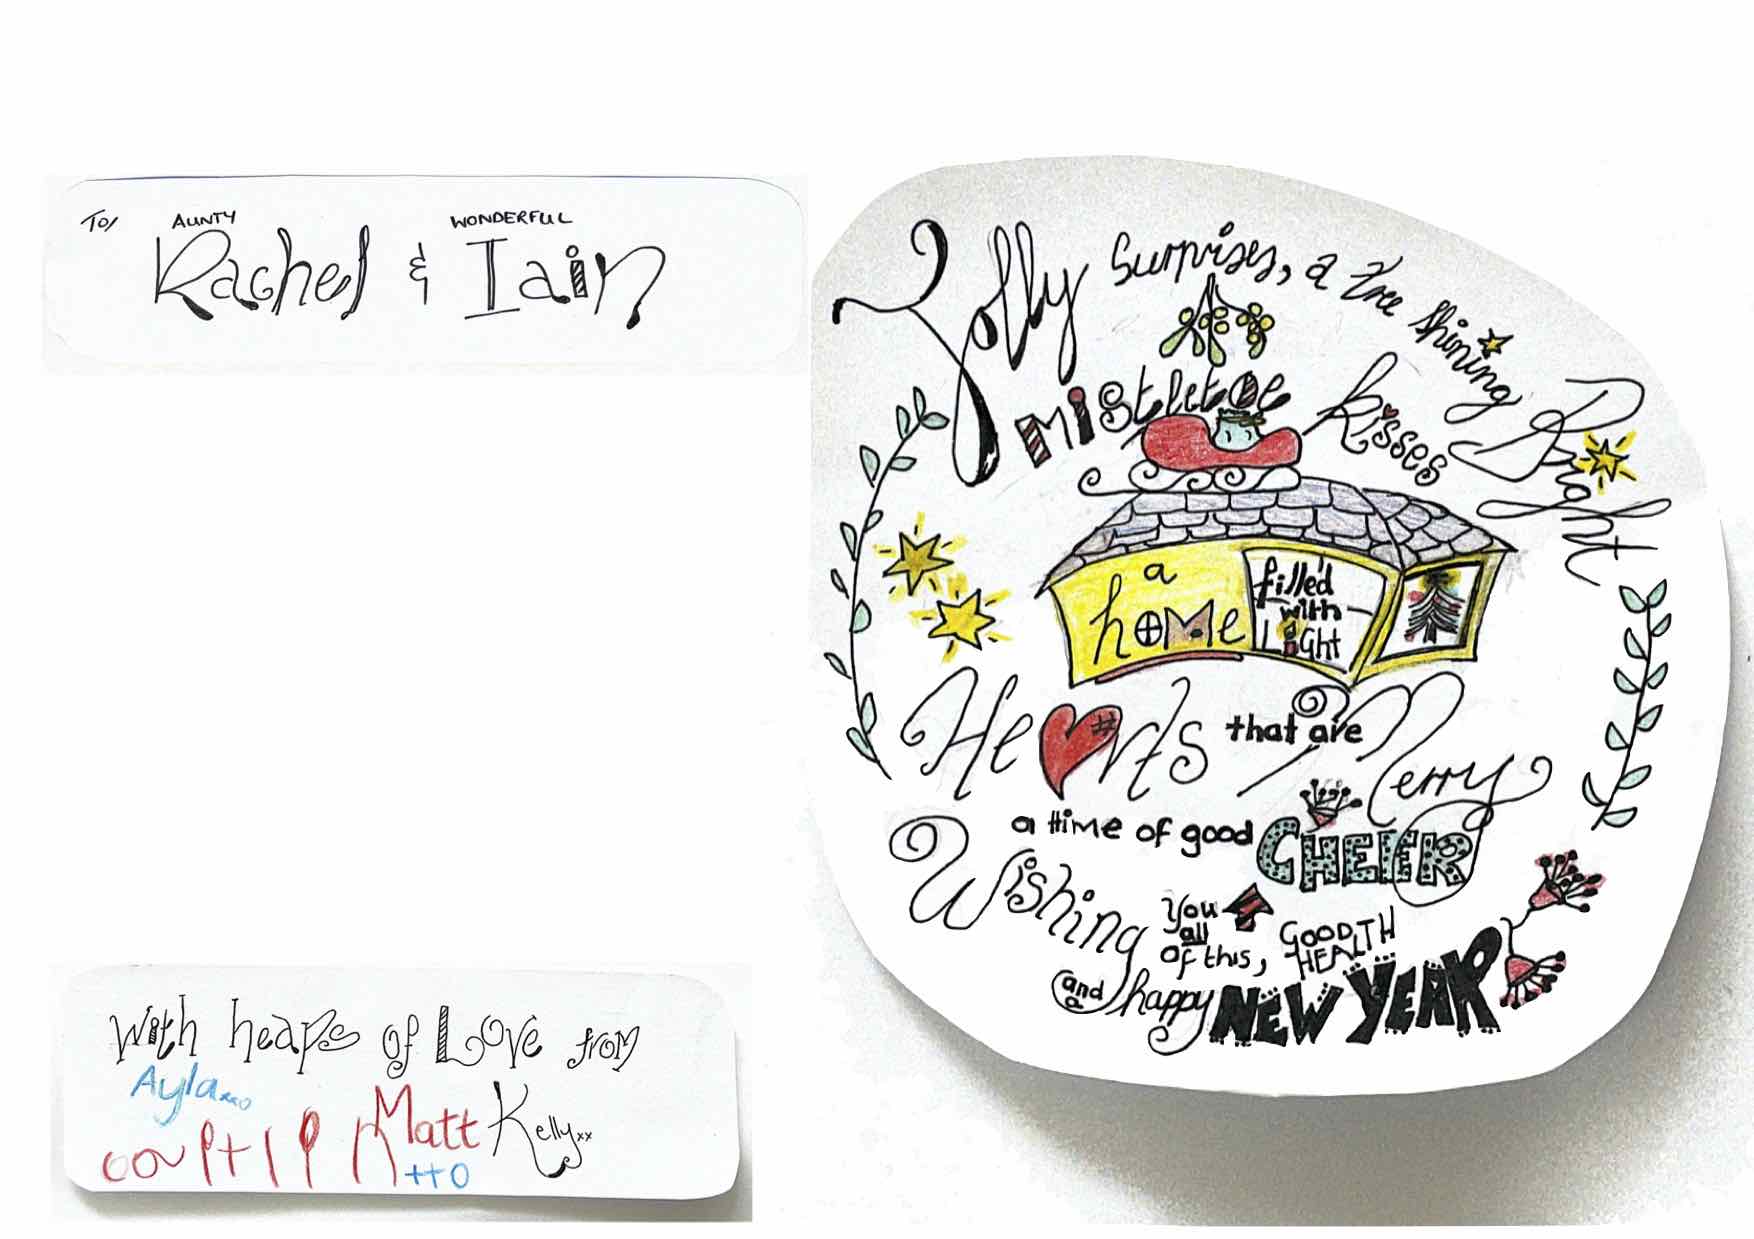 To/ AUNTY WONDERFUL
Rachel & Iain
With heaps of Love from
Ayla xxo
Matt Kelly xx
Jolly Surprises, a tree shining Bright
mistletoe kisses
a home filled with Light
Hearts that are Merry
a time of good CHEER
Wishing you all of this, GOOD HEALTH
and a happy NEW YEAR